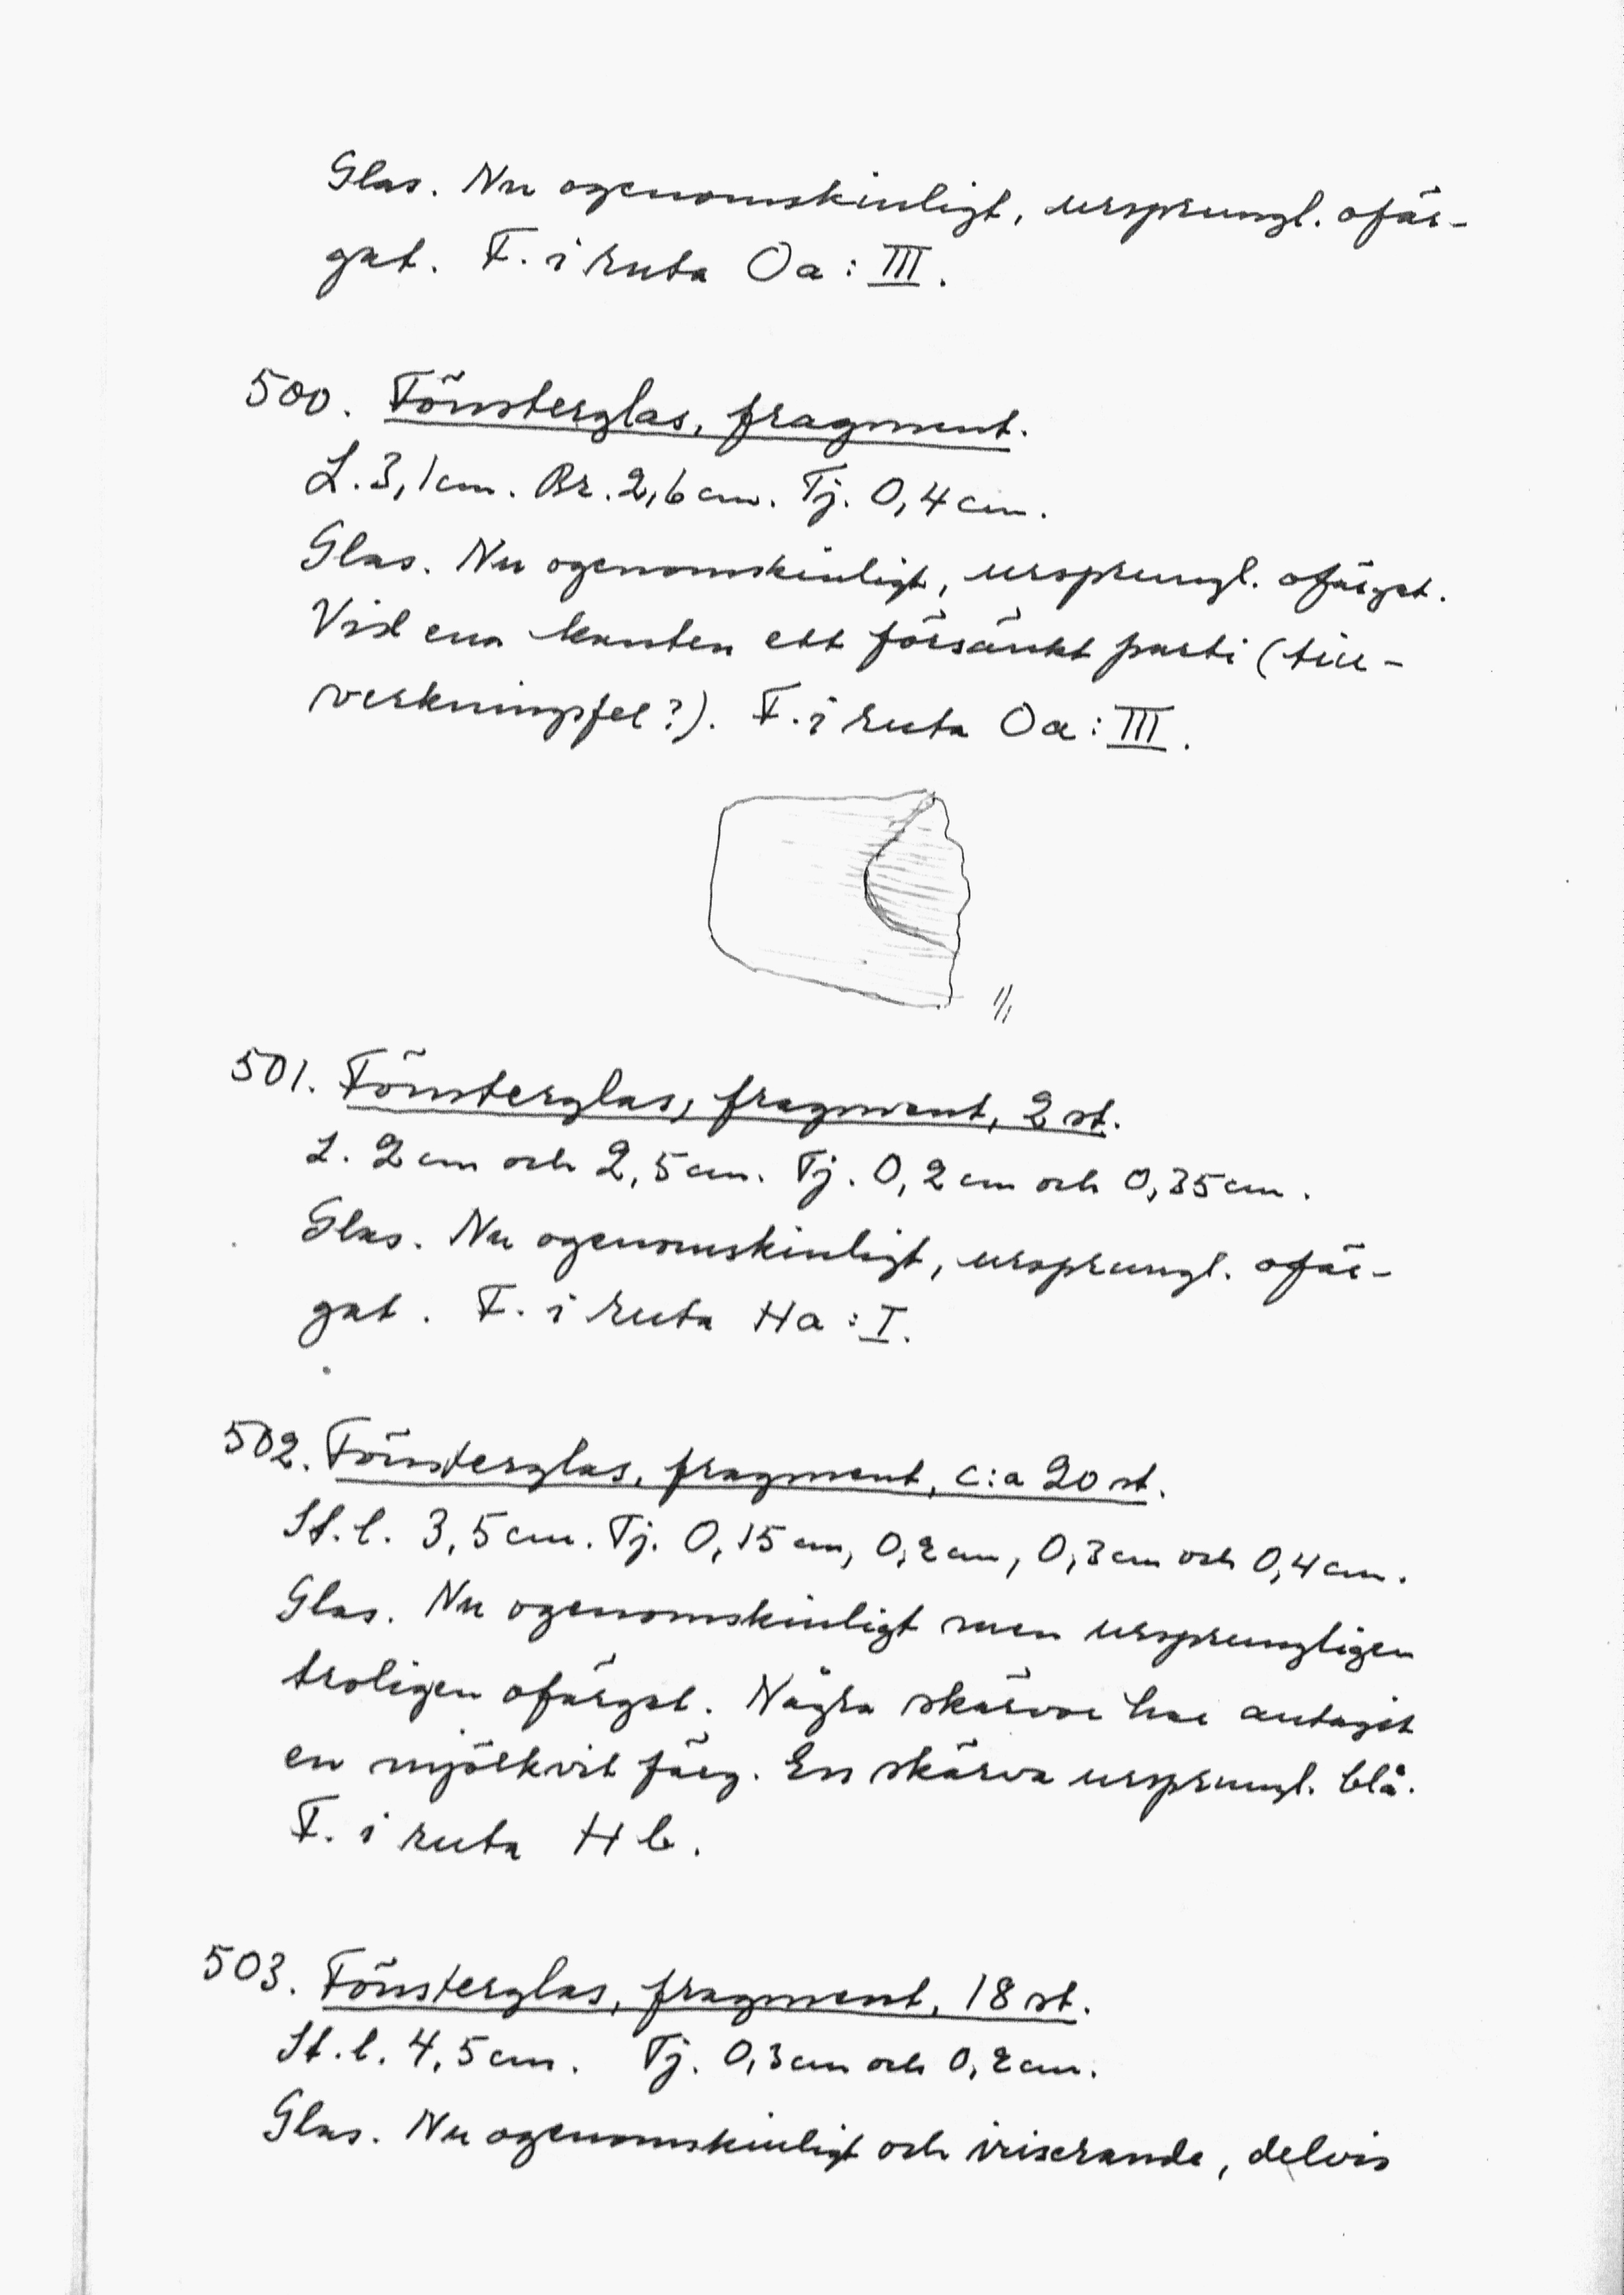 Glas. Nu ogenomskinligt, ursprungl. ofär-
gat. F. i ruta Oa: III.
500. Fönsterglas, fragment.
L. 3,1 cm. Br. 2,6 cm. Tj. 0,4 cm.
Glas. Nu ogenomskinligt, ursprungl. ofärgat.
Vid ena kanten ett försänkt parti (till-
verkningsfel?). F. i ruta Oa: III.
1/1
501. Fönsterglas, fragment, 2 st.
L. 2 cm och 2,5 cm. Tj. 0,2 cm och 0,35 cm.
Glas. Nu ogenomskinligt, ursprungl. ofär-
gat. F. i ruta Ha: I.
502. Fönsterglas, fragment, c:a 20 st.
St. l. 3,5 cm. Tj. 0,15 cm, 0,2 cm, 0,3 cm och 0,4 cm.
Glas. Nu ogenomskinligt men ursprungligen
troligen ofärgat. Några skärvor har antagit
en mjölkvit färg. En skärva ursprungl. blå.
F. i ruta Hb.
503. Fönsterglas, fragment, 18 st.
St. l. 4,5 cm. Tj. 0,3 cm och 0,2 cm.
Glas. Nu ogenomskinligt och iriserande, delvis